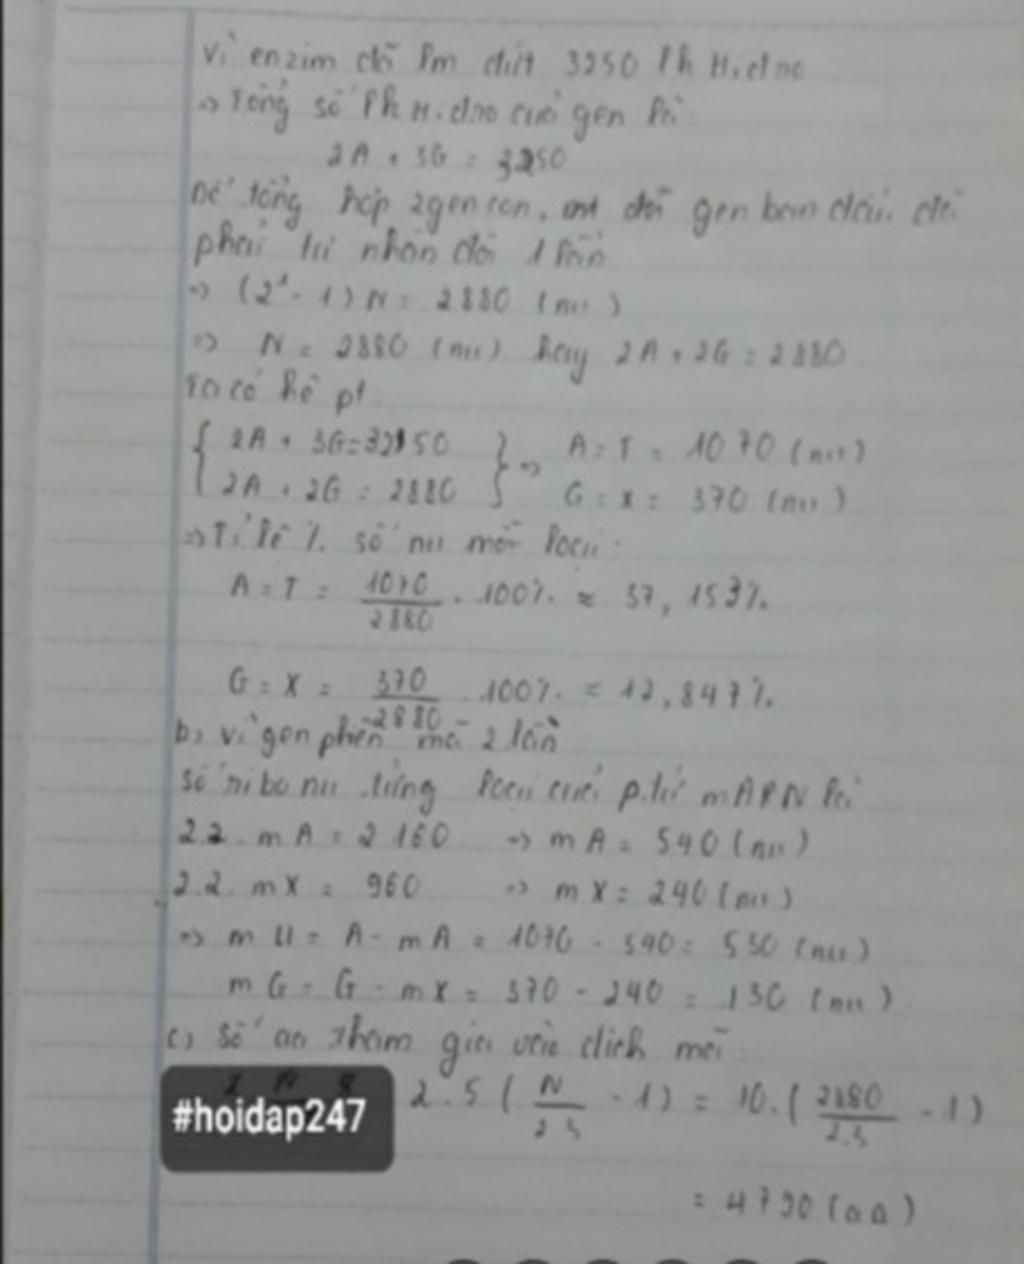 Vì enzim đã làm đứt 3250 lk Hiđro
=> Tổng số lk Hiđro của gen là:
2A + 3G = 3250
Để tổng hợp 2 gen con, gen ban đầu đã
phải tự nhân đôi 1 lần
=> (2¹ - 1) N = 2880 (nu)
=> N = 2880 (nu) hay 2A + 2G = 2880
Ta có hệ pt
{ 2A + 3G = 3250 } => A = T = 1070 (nu)
{ 2A + 2G = 2880 } G = X = 370 (nu)
=> Tỉ lệ % số nu mỗi loại:
A = T = 1070/2880 . 100% ≈ 37,153%
G = X = 370/2880 . 100% ≈ 12,847%
b) vì gen phiên mã 2 lần
số ribonu từng loại của p.tử mARN là
2.2. mA = 2160 => mA = 540 (nu)
2.2. mX = 960 => mX = 240 (nu)
=> mU = A - mA = 1070 - 540 = 530 (nu)
mG = G - mX = 370 - 240 = 130 (nu)
c) Số aa tham gia vào dịch mã
#hoidap247 2.5 ( N/2.3 - 1) = 10.( 2880/2.3 - 1)
= 4790 (aa)